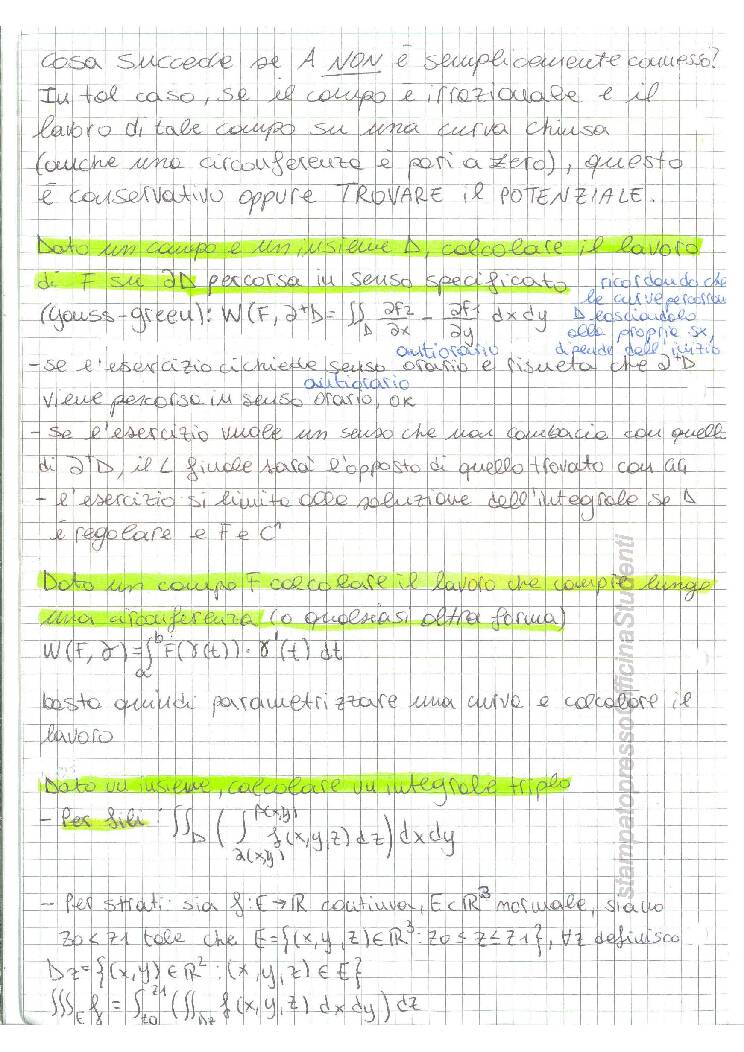 Cosa succede se A NON è semplicemente connesso?
In tal caso, se il campo è irrazionale e il
lavoro di tale campo su una curva chiusa
(anche una circonferenza è pari a zero), questo
è conservativo oppure TROVARE il POTENZIALE.
Dato un campo e un insieme D, calcolare il lavoro
di F su ∂D percorsa in senso specificato
(Gauss-green): W(F, ∂⁺D = ∬_D ∂f2/∂x - ∂f1/∂y dxdy
ricordando che
le curve percorron
D lasciandolo
alla propria sx,
dipende dall'inizio
antiorario
- se l'esercizio richiede senso orario e risulta che ∂⁺D
antiorario
viene percorsa in senso orario, ok
- se l'esercizio vuole un senso che non combacia con quello
di ∂⁺D, il L finale sarà l'opposto di quello trovato con GG
- l'esercizio si limita alla soluzione dell'integrale se D
è regolare e F è C¹
Dato un campo F calcolare il lavoro che compie lungo
una circonferenza (o qualsiasi altra forma)
W(F, γ) = ∫_a^b F(γ(t)) · γ'(t) dt
basta quindi parametrizzare una curva e calcolare il
lavoro
Dato un insieme, calcolare un integrale triplo
- Per fili: ∬_D ( ∫_{α(x,y)}^{β(x,y)} f(x,y,z) dz ) dxdy
- Per strati: sia f: E → ℝ continua, E⊂ℝ³ normale, siano
z0 < z1 tale che E={(x,y,z)∈ℝ³: z0 ≤ z ≤ z1}, ∀z definisco
Dz={(x,y)∈ℝ²: (x,y,z)∈E}
∭_E f = ∫_{z0}^{z1} (∬_{Dz} f(x,y,z) dxdy) dz
stampatopressoOfficinaStudenti